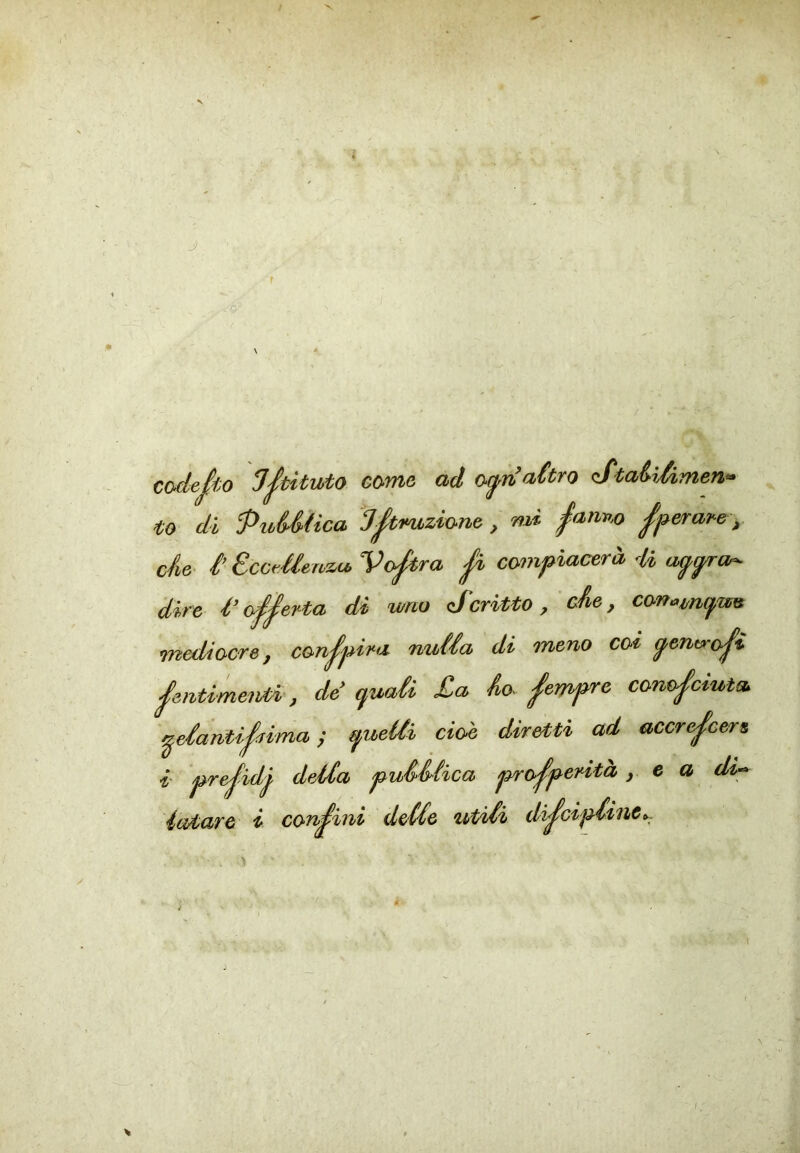 codeſto Iſtituto come ad ogn'altro Stabilimen-
to di Pubblica Iſtruzione, mi fanno ſperare,
che l'Eccellenza Voſtra ſi compiacerà di aggra-
dire l'offerta di uno Scritto, che, comunque
mediocre, conſpira nulla di meno coi generoſi
ſentimenti, de' quali La ho ſempre conoſciuta
zelantiſsima; quelli cioè diretti ad accreſcere
i preſidj della pubblica proſperità, e a di-
latare i confini delle utili diſcipline.